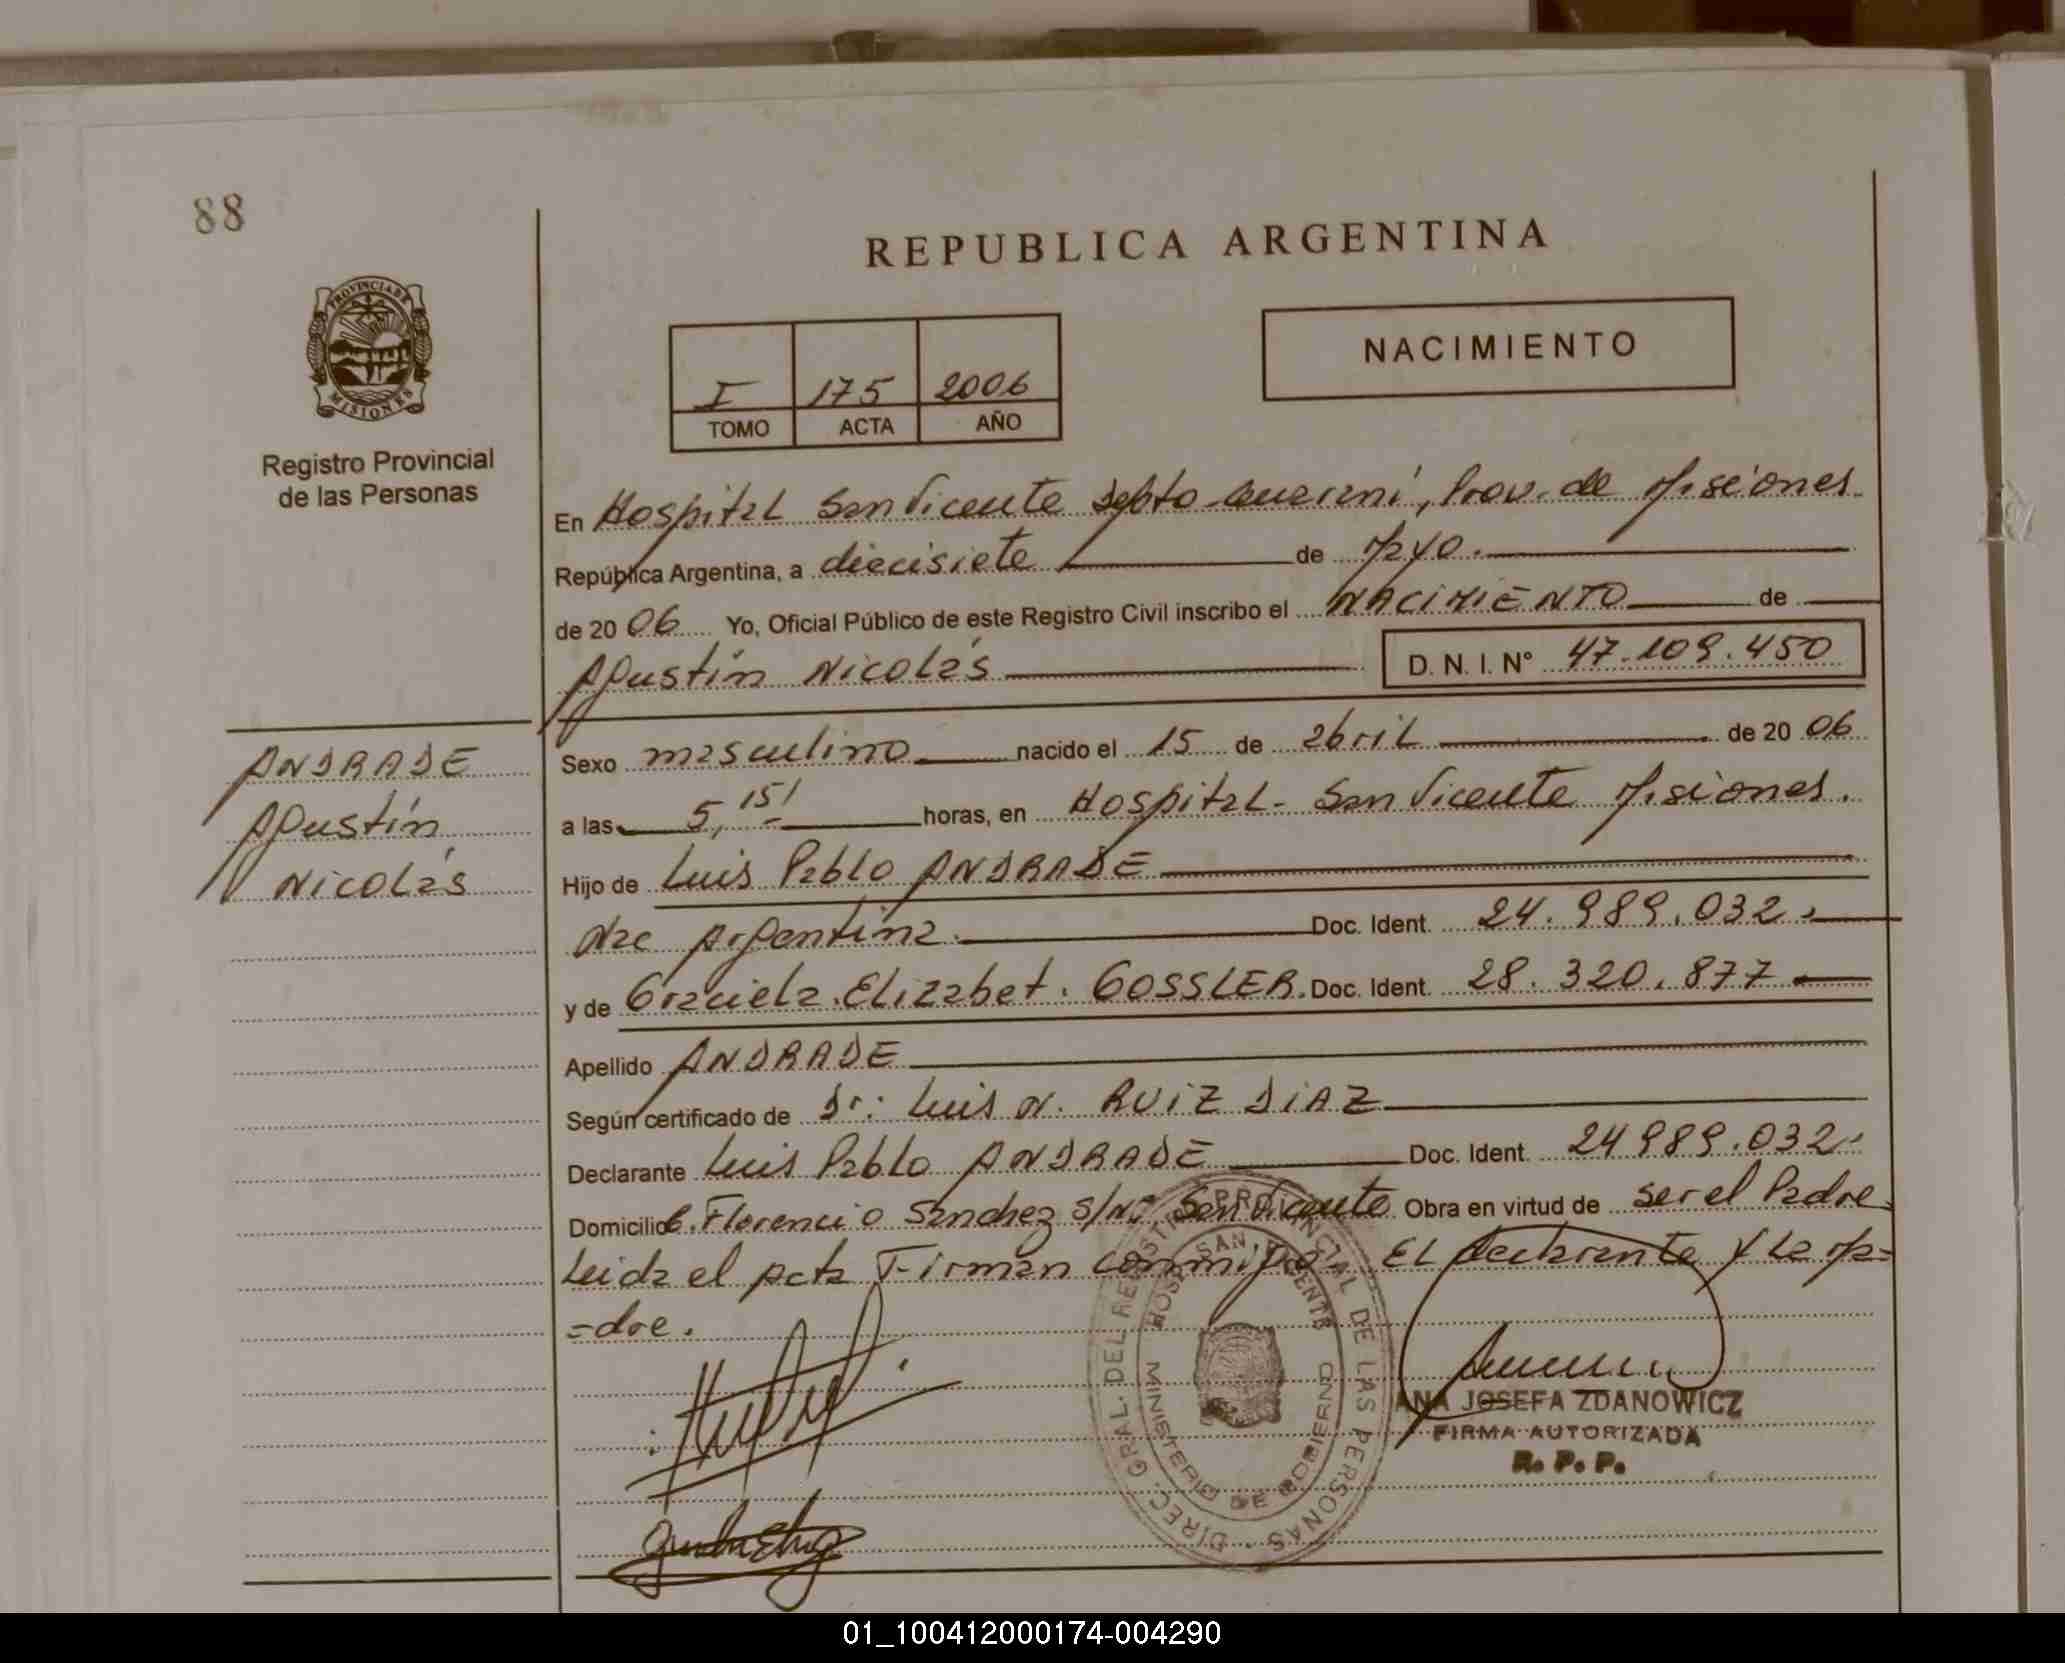 88
REPUBLICA ARGENTINA
PROVINCIA DE
MISIONES
Registro Provincial
de las Personas
I 175 2006
TOMO ACTA AÑO
NACIMIENTO
En Hospital San Vicente Depto Guaraní, Prov. de Misiones.
República Argentina, a diecisiete de Mayo.
de 2006 Yo, Oficial Público de este Registro Civil inscribo el NACIMIENTO de
Agustín Nicolás D. N. I. N° 47.109.450
ANDRADE
Agustín
Nicolás
Sexo masculino nacido el 15 de abril de 2006
a las 5,15' horas, en Hospital - San Vicente Misiones.
Hijo de Luis Pablo ANDRADE
Nac Argentina. Doc. Ident. 24.989.032.
y de Graciela Elizabet. GOSSLER. Doc. Ident. 28.320.877
Apellido ANDRADE
Según certificado de Dr: Luis N. RUIZ DIAZ
Declarante Luis Pablo ANDRADE Doc. Ident. 24989.032.
Domicilio C. Florencio Sanchez S/N° San Vicente Obra en virtud de ser el Padre
Leida el acta Firman conmigo. EL declarante y la ma=
=dre.
DIREC. GRAL. DEL REGISTRO PROVINCIAL DE LAS PERSONAS
HOSP. SAN VICENTE
MINISTERIO DE GOBIERNO
ANA JOSEFA ZDANOWICZ
FIRMA AUTORIZADA
R. P. P.
01_100412000174-004290